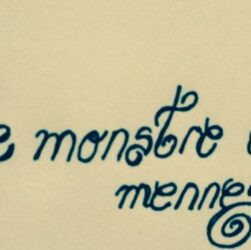 e monstre
mennes